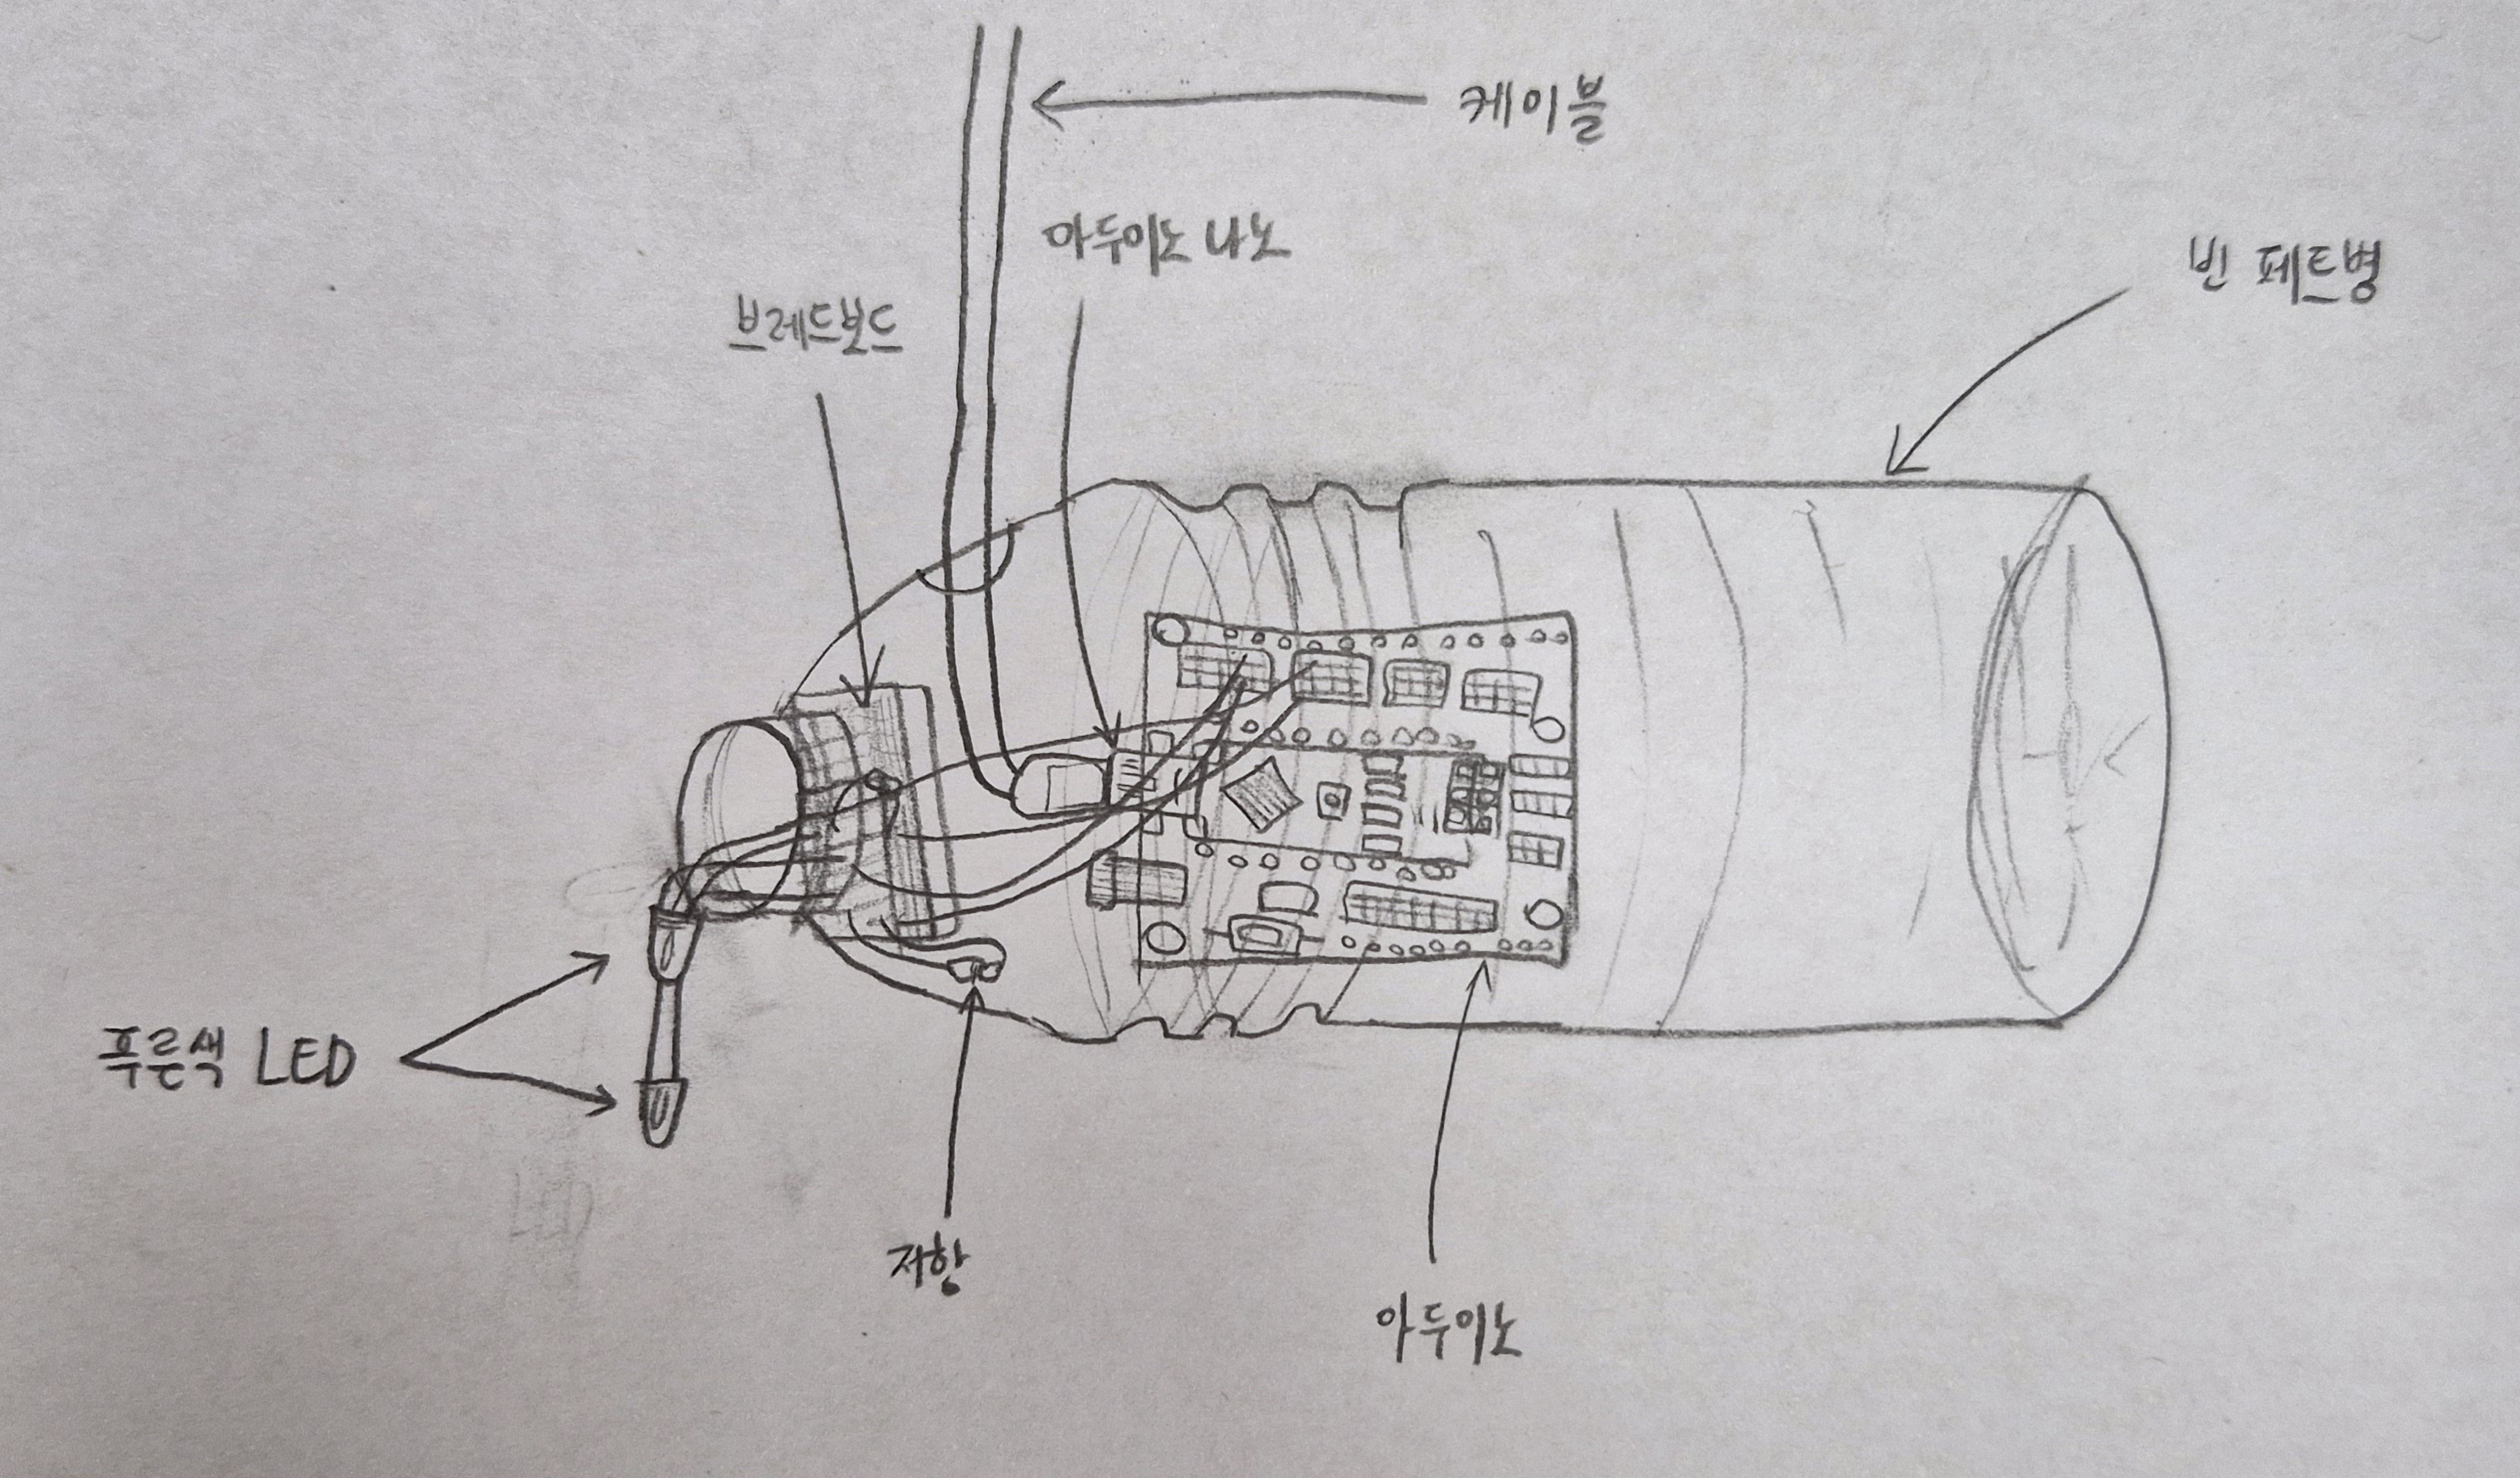 케이블
아두이노 나노
빈 페트병
브레드보드
푸른색 LED
LED
저항
아두이노